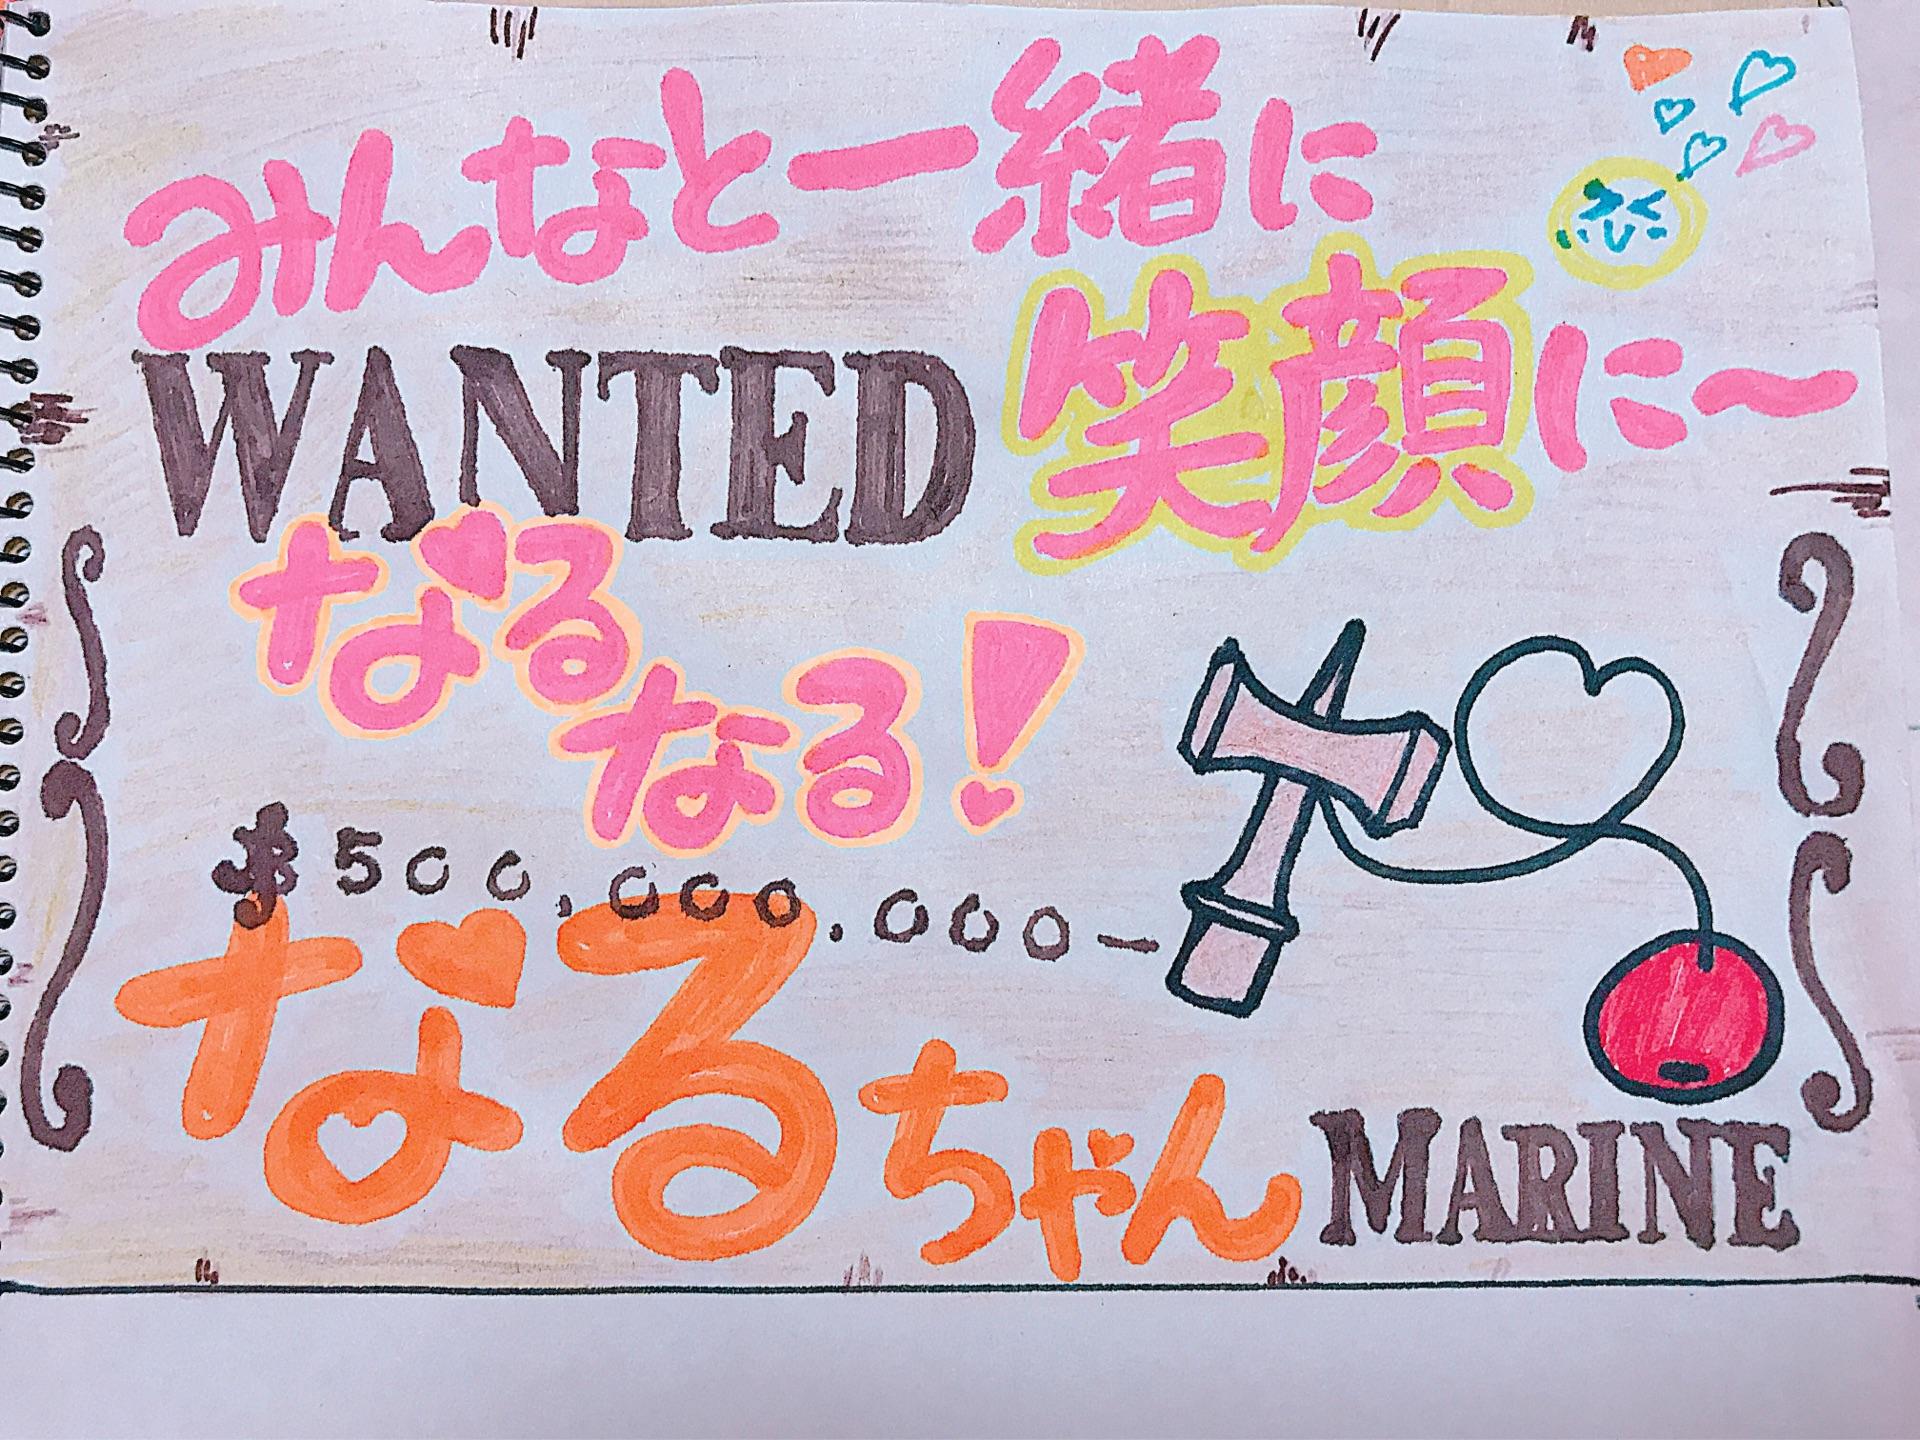 みんなと一緒に
笑顔に〜
WANTED
なるなる!
$500,000.000—
なるちゃん
MARINE